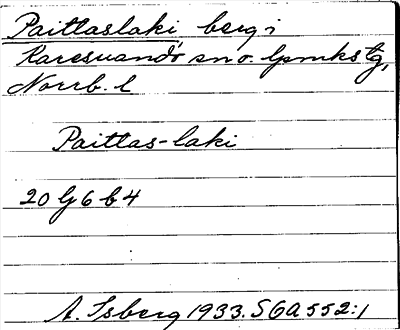 Paittaslaki berg i
Karesuando sn o. lpmkstg,
Norrb. l
Paittas-laki
20 G 6 b 4
A. Isberg 1933. SGA 552:1